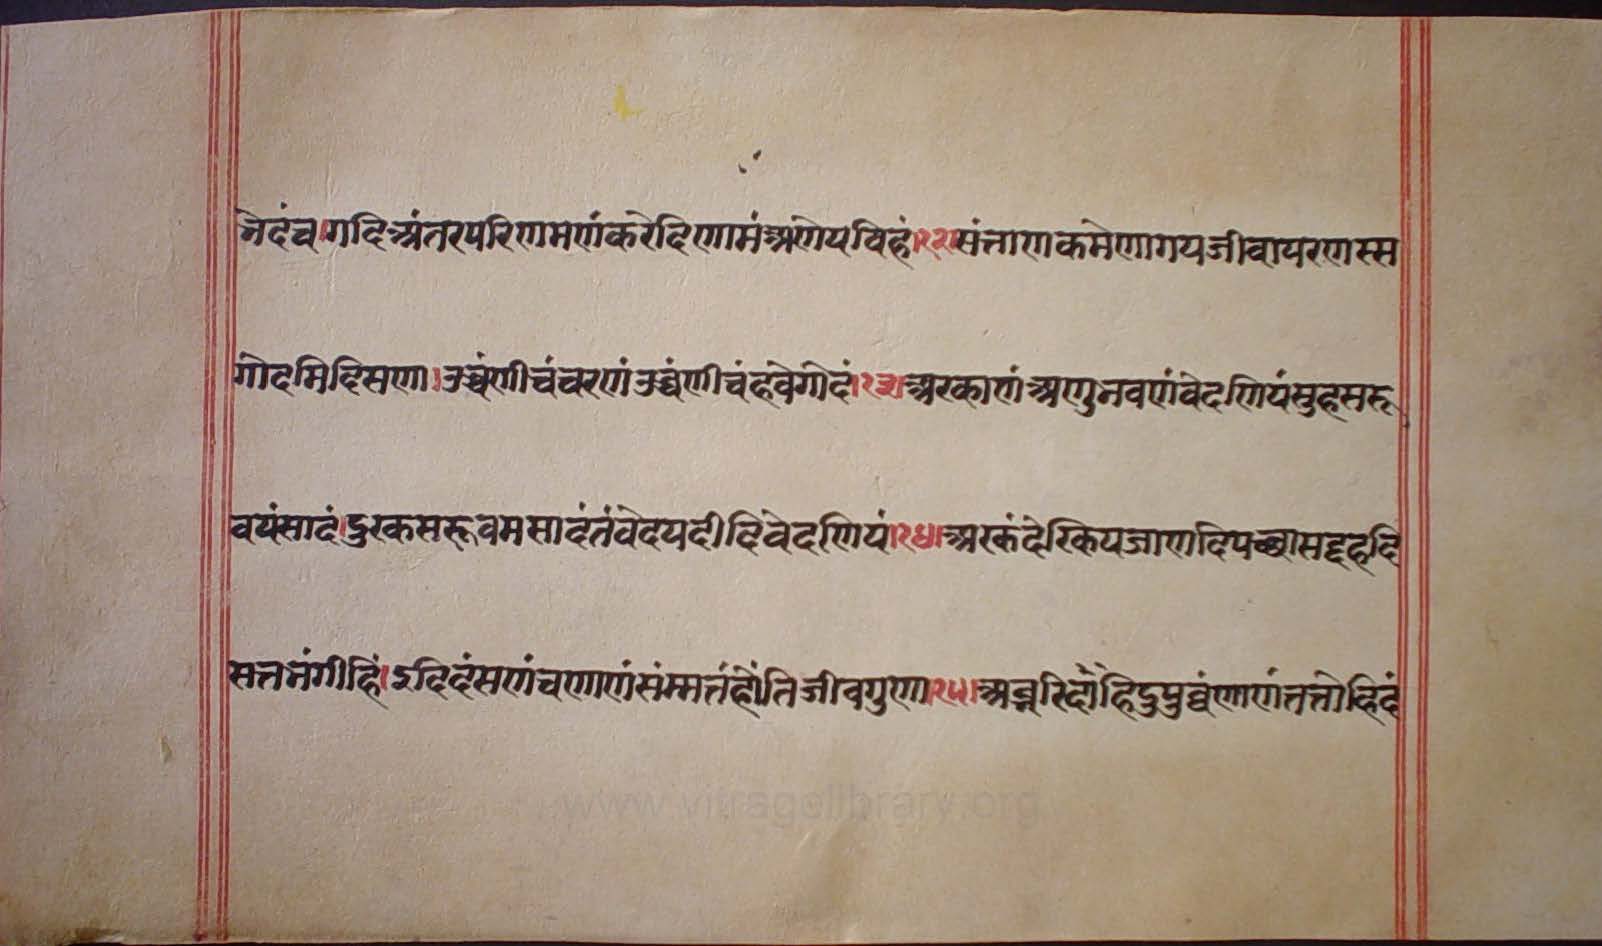 भेदं च।गदिअंतरपरिणमणंकरेदिणामंअणेयविहं।१२।संताणकमेणागयजीवायरणस्स
गोदमिदिसणा।उच्चंणीचंचरणंउच्चंणीचंहवेगोदं।१३।अरकाणंअणुभवणंवेदणियंसुहसरू
वयंसादं।दुरकसरूवमसादंतंवेदयदीदिवेदणियं।१४।अरकंदेरिकयजाणदिपच्छासद्दहदि
सत्तभंगीहिं।इदिदंसणंचणाणंसंम्मत्तंहोंतिजीवगुणा।१५।अब्भरिहिदोहिदुपुव्वंणाणंतत्तोहिदं
www.vitragelibrary.org